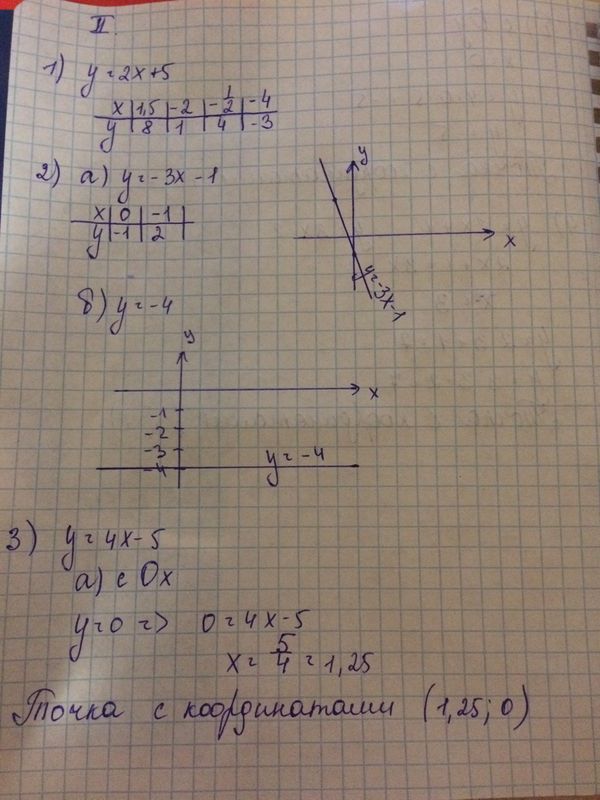 II.
1) y = 2x+5
x | 1,5 | -2 | -1/2 | -4
y | 8 | 1 | 4 | -3
2) а) y = -3x -1
x | 0 | -1
y | -1 | 2
y
x
y=-3x-1
б) y = -4
y
x
-1
-2
-3
-4
y = -4
3) y = 4x - 5
а) с Ox
y=0 => 0 = 4x - 5
x = 5/4 = 1,25
Точка с координатами (1,25; 0)